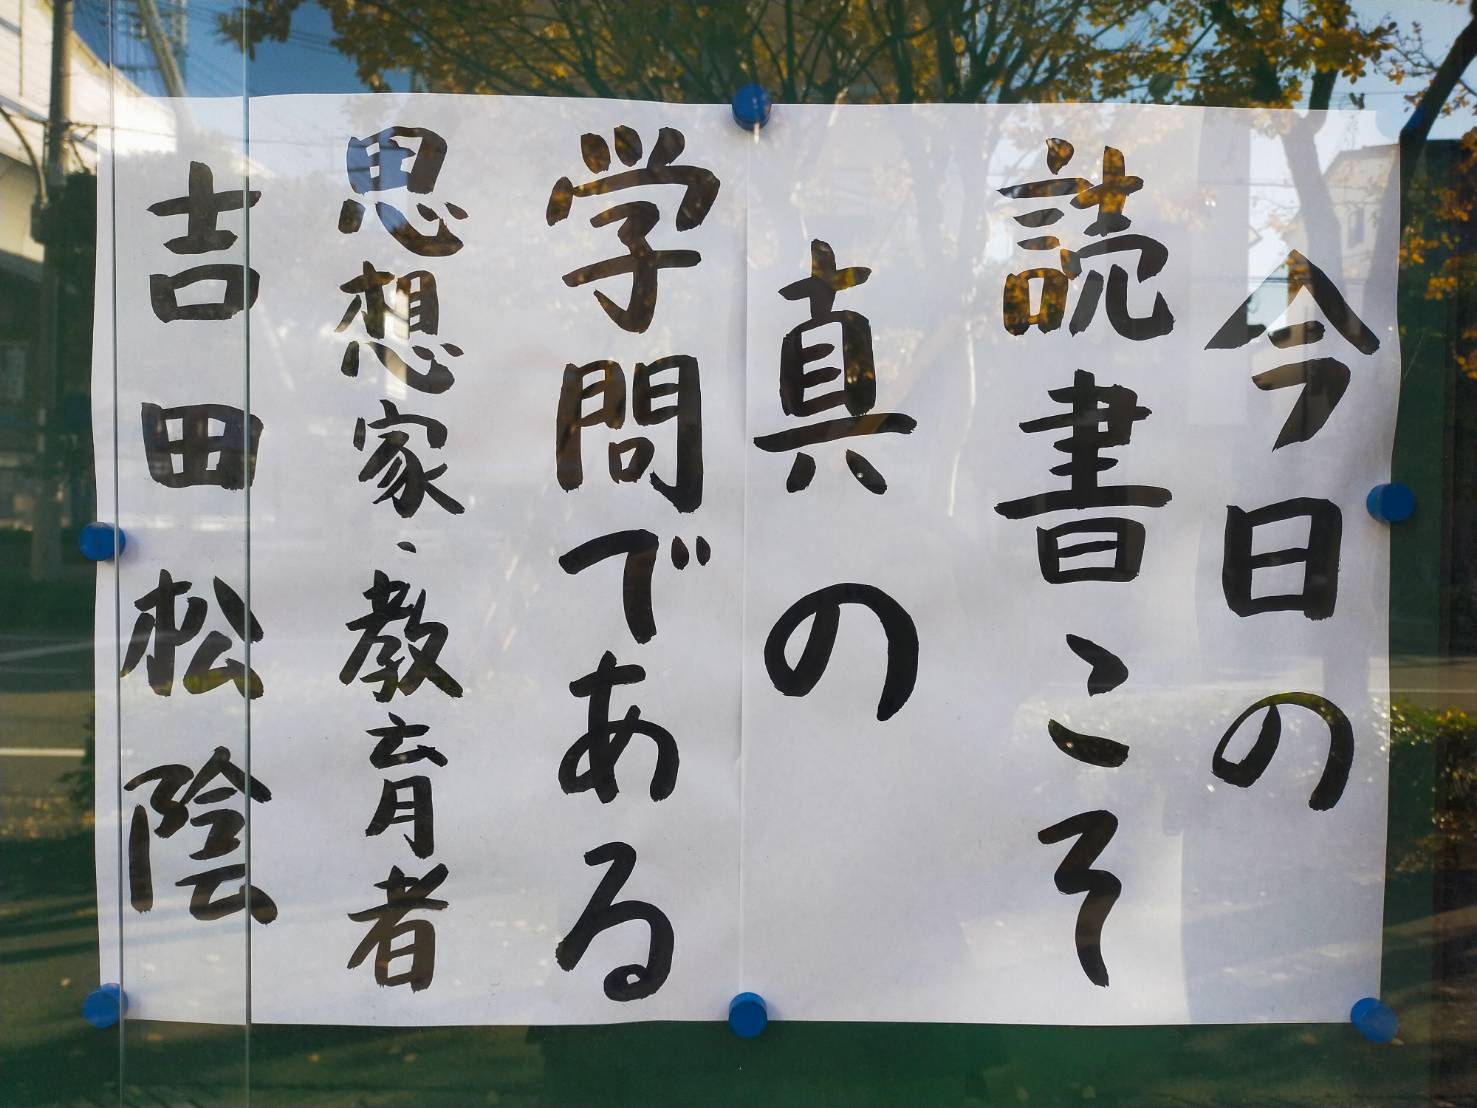 今日の
読書こそ
真の
学問である
思想家・教育者
吉田松陰